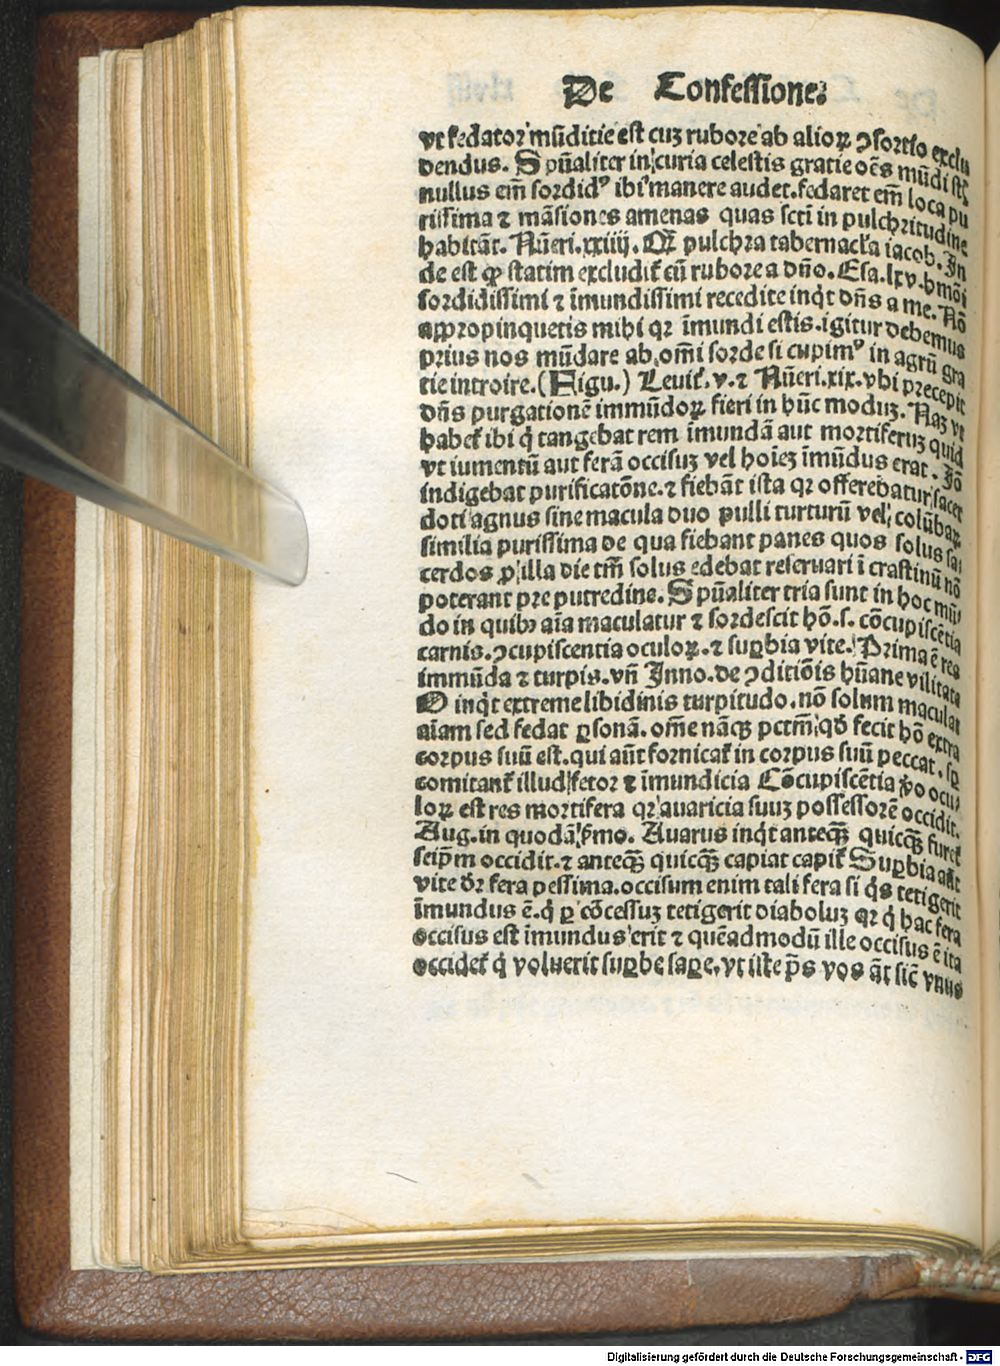 De Confessione.
vt fedator mūditie est cuꝫ rubore ab alioꝝ ꝯsortio exclu
dendus. Spūaliter in curia celestis gratie oēs mūdi st̄
nullus em̄ sordidꝰ ibi manere audet. fedaret em̄ loca pu
rissima ⁊ māsiones amenas quas scti in pulchritudine
habitāt. Nūeri. xxiiij. Qꝫ pulchra tabernacl̓a iacob. In
de est ꝙ statim excludit̓ cū rubore a dn̄o. Esa. lxv. hmōi
sordidissimi ⁊ īmundissimi recedite inqͥt dn̄s a me. Nō
appropinquetis mihi qꝛ īmundi estis. igitur debemus
prius nos mūdare ab om̄i sorde si cupimꝰ in agrū gra
tie introire. (Figu.) Leuit̓. v. ⁊ Nūeri. xix. vbi precepit
dn̄s purgationē immūdoꝝ fieri in hūc moduꝫ. Naꝫ vt
habet̓ ibi qͥ tangebat rem īmundā aut mortiferuꝫ quid
vt iumentū aut ferā occisuꝫ vel hoīeꝫ īmūdus erat. Iō
indigebat purificatōne. ⁊ fiebāt ista qꝛ offerebatur sacer
doti agnus sine macula duo pulli turturū vel colūbaꝝ
similia purissima de qua fiebant panes quos solus sa
cerdos ꝓ illa die tm̄ solus edebat reseruari ī crastinū nō
poterant pre putredine. Spūaliter tria sunt in hoc mū
do in quibꝫ aīa maculatur ⁊ sordescit hō. s. cōcupiscētia
carnis. ꝯcupiscentia oculoꝝ. ⁊ suꝑbia vite. Prima ē res
immūda ⁊ turpis. vn̄ Inno. de ꝯditiōis hūane vilitate
O inqͥt extreme libidinis turpitudo. nō solum maculat
aīam sed fedat ꝑsonā. om̄e nāqꝫ pctm̄ qd̓ fecit hō extra
corpus suū est. qui aūt fornicat̓ in corpus suū peccat. sp̄
comitant̓ illud fetor ⁊ īmundicia Cōcupiscētia v̓o ocu
loꝝ est res mortifera qꝛ auaricia suuꝫ possessorē occidit.
Aug. in quodā ẜmo. Auarus inqͥt anteqꝫ quicqꝫ furet̓
seip̄m occidit. ⁊ anteqꝫ quicqꝫ capiat capit̓ Suꝑbia aūt
vite dꝛ fera pessima. occisum enim tali fera si qͥs tetigerit
īmundus ē. qͥ ꝑ cōcessuꝫ tetigerit diaboluꝫ qꝛ qͥ hac fera
occisus est īmundus erit ⁊ quēadmodū ille occisus ē ita
occidet̓ qͥ voluerit suꝑbe saꝑe. vt iste p̄s vos āt sic̄ vnus
Digitalisierung gefördert durch die Deutsche Forschungsgemeinschaft - DFG